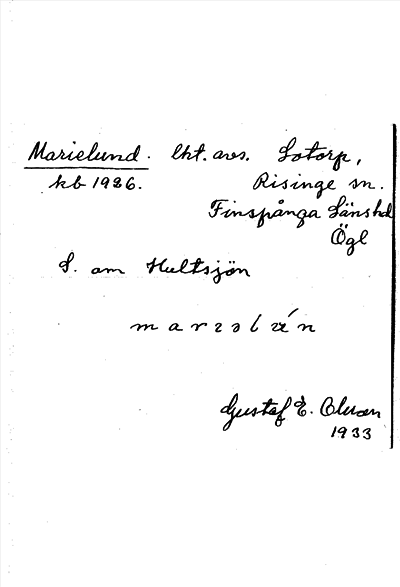 Marielund. lht. avs. Lotorp,
kb 1926. Risinge sn.
Finspånga Länshd
Ögl
S. om Hultsjön
Gustaf E. Olsson
1933